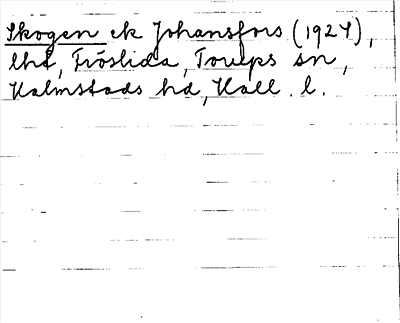 Skogen ek Johansfors (1924),
lht, Fröslida, Torups sn,
Halmstads hd, Hall. l.